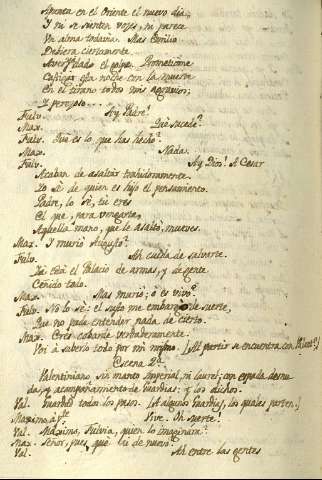 Apunta en el Oriente el nuevo dia,
Y ni se sienten voces, ni parece
Un alma todavia. Mas Emilio
Debiera ciertamente
Averse dado el golpe. Prometiome
Castigar esta noche con la muerte
En el tirano todos mis agravios;
Y perezoso...
Fulv. Ay Padre!
Max. Qué sucede?
Fulv. Qué es lo que has hecho?
Max. Nada.
Fulv. Ay Dios! A Cesar
Acaban de asaltar traidoramente.
Yo sé de quien es hijo el pensamiento.
Padre, lo sé, tu eres
El que, para vengarte,
Aquella mano, que le asaltó, mueves.
Max. Y murió Augusto?
Fulv. Ah cuida de salvarte.
Ya está el Palacio de armas, y de gente
Ceñido todo.
Max. Mas murió; ó es vivo?
Fulv. No lo sé: el susto me embargó de suerte,
Que no pude entender nada de cierto.
Max. Eres cobarde verdaderamente.
Voi á saberlo todo por mi mismo. [Al partir se encuentra con
Escena 2a.
Valentiniano sin manto Imperial, ni laurel, con espada desnu-
da, y acompañamiento de Guardias: y los dichos.
Val. Guardad todos los pasos. [A algunos Guardias, los quales parten.]
Maximo á pte. Vive. Oh suerte!
Val. Máximo, Fulvia, quien lo imaginara?
Max. Señor, pues, qué ai de nuevo?
Val. Ah entre las gentes